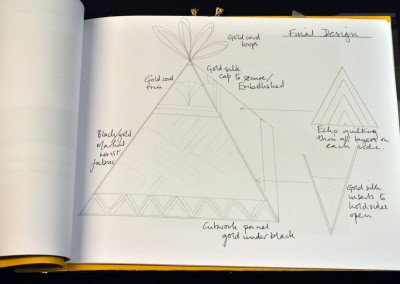 Final Design
Gold cord
loops
Gold silk
cap to secure/
Embellished
Gold cord
trim
Black/gold
fabric
Echo quilting
thro all layers on
each side.
Gold silk
inserts to
hold sides
open
Cutwork panel
gold under black